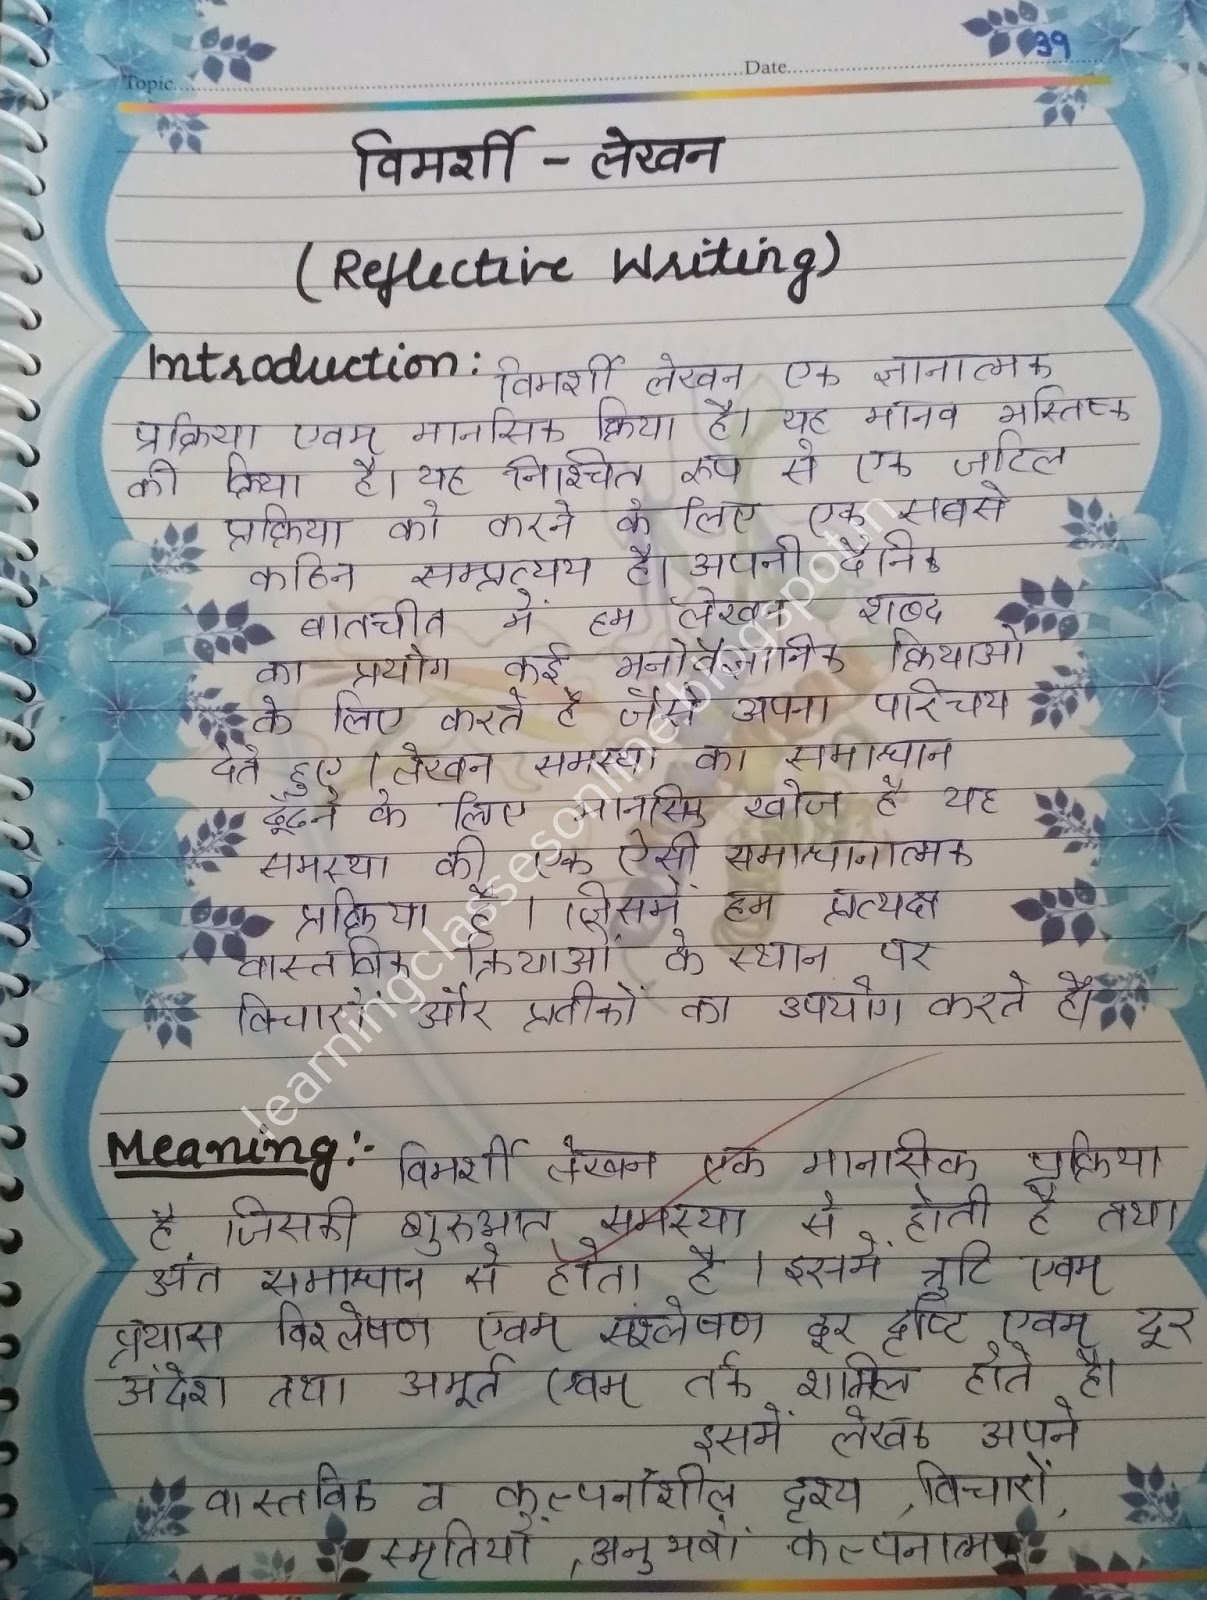 39
Topic
Date
विमर्शी - लेखन
(Reflective Writing)
Introduction: विमर्शी लेखन एक ज्ञानात्मक
प्रक्रिया एवम् मानसिक क्रिया है। यह मानव मस्तिष्क
की क्रिया है। यह निश्चित रूप से एक जटिल
प्रक्रिया को करने के लिए एक सबसे
कठिन सम्प्रत्यय है। अपनी दैनिक
बातचीत में हम लेखन शब्द
का प्रयोग कई मनोवैज्ञानिक क्रियाओं
के लिए करते है जैसे अपना परिचय
देते हुए। लेखन समस्या का समाधान
ढूंढने के लिए मानसिक खोज है यह
समस्या की एक ऐसी समाधानात्मक
प्रक्रिया है। जिसमें हम प्रत्यक्ष
वास्तविक क्रियाओं के स्थान पर
विचारों और प्रतीकों का उपयोग करते है।
Meaning:- विमर्शी लेखन एक मानसिक प्रक्रिया
है जिसकी शुरुआत समस्या से होती है तथा
अंत समाधान से होता है। इसमें त्रुटि एवम्
प्रयास विश्लेषण एवम् संश्लेषण दूर दृष्टि एवम् दूर
अंदेश तथा अमूर्त एवम् तर्क शामिल होते है।
इसमें लेखक अपने
वास्तविक व कल्पनाशील दृश्य, विचारों,
स्मृतियों, अनुभवों कल्पनात्मक
learningclassesonline.blogspot.in